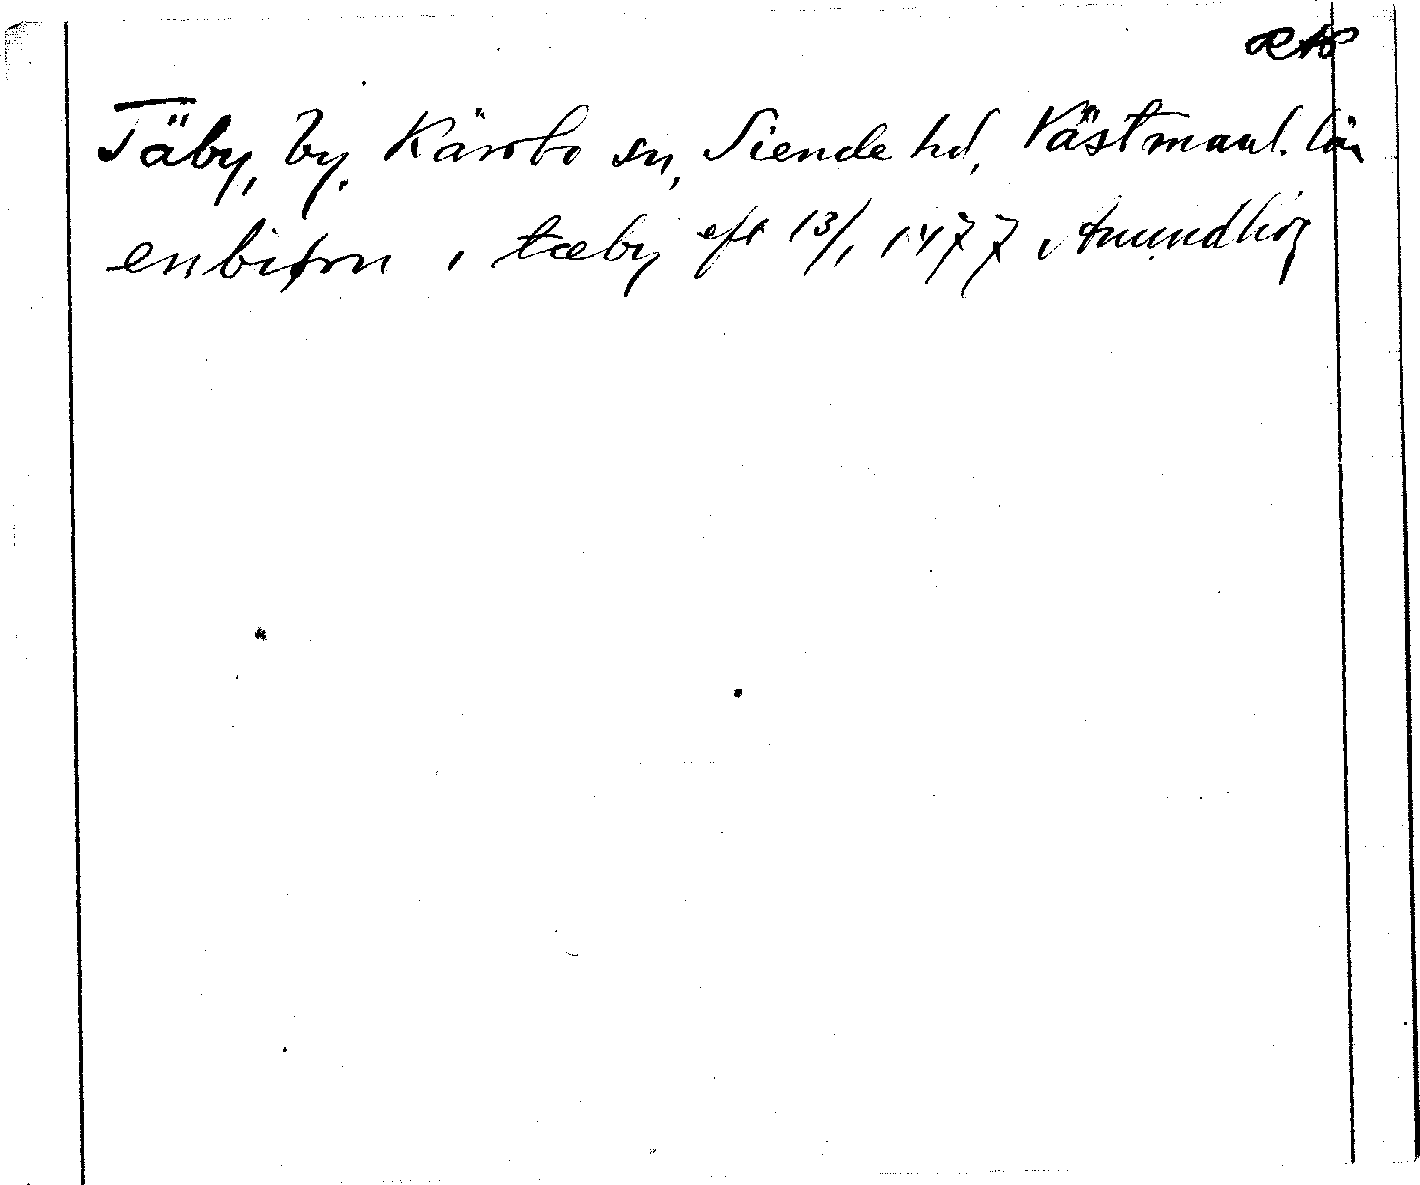 Täby, by, Kärrbo sn, Siende hd, Västmanl. län
enbiorn i tæby eft 13/1 1477 Anundhög